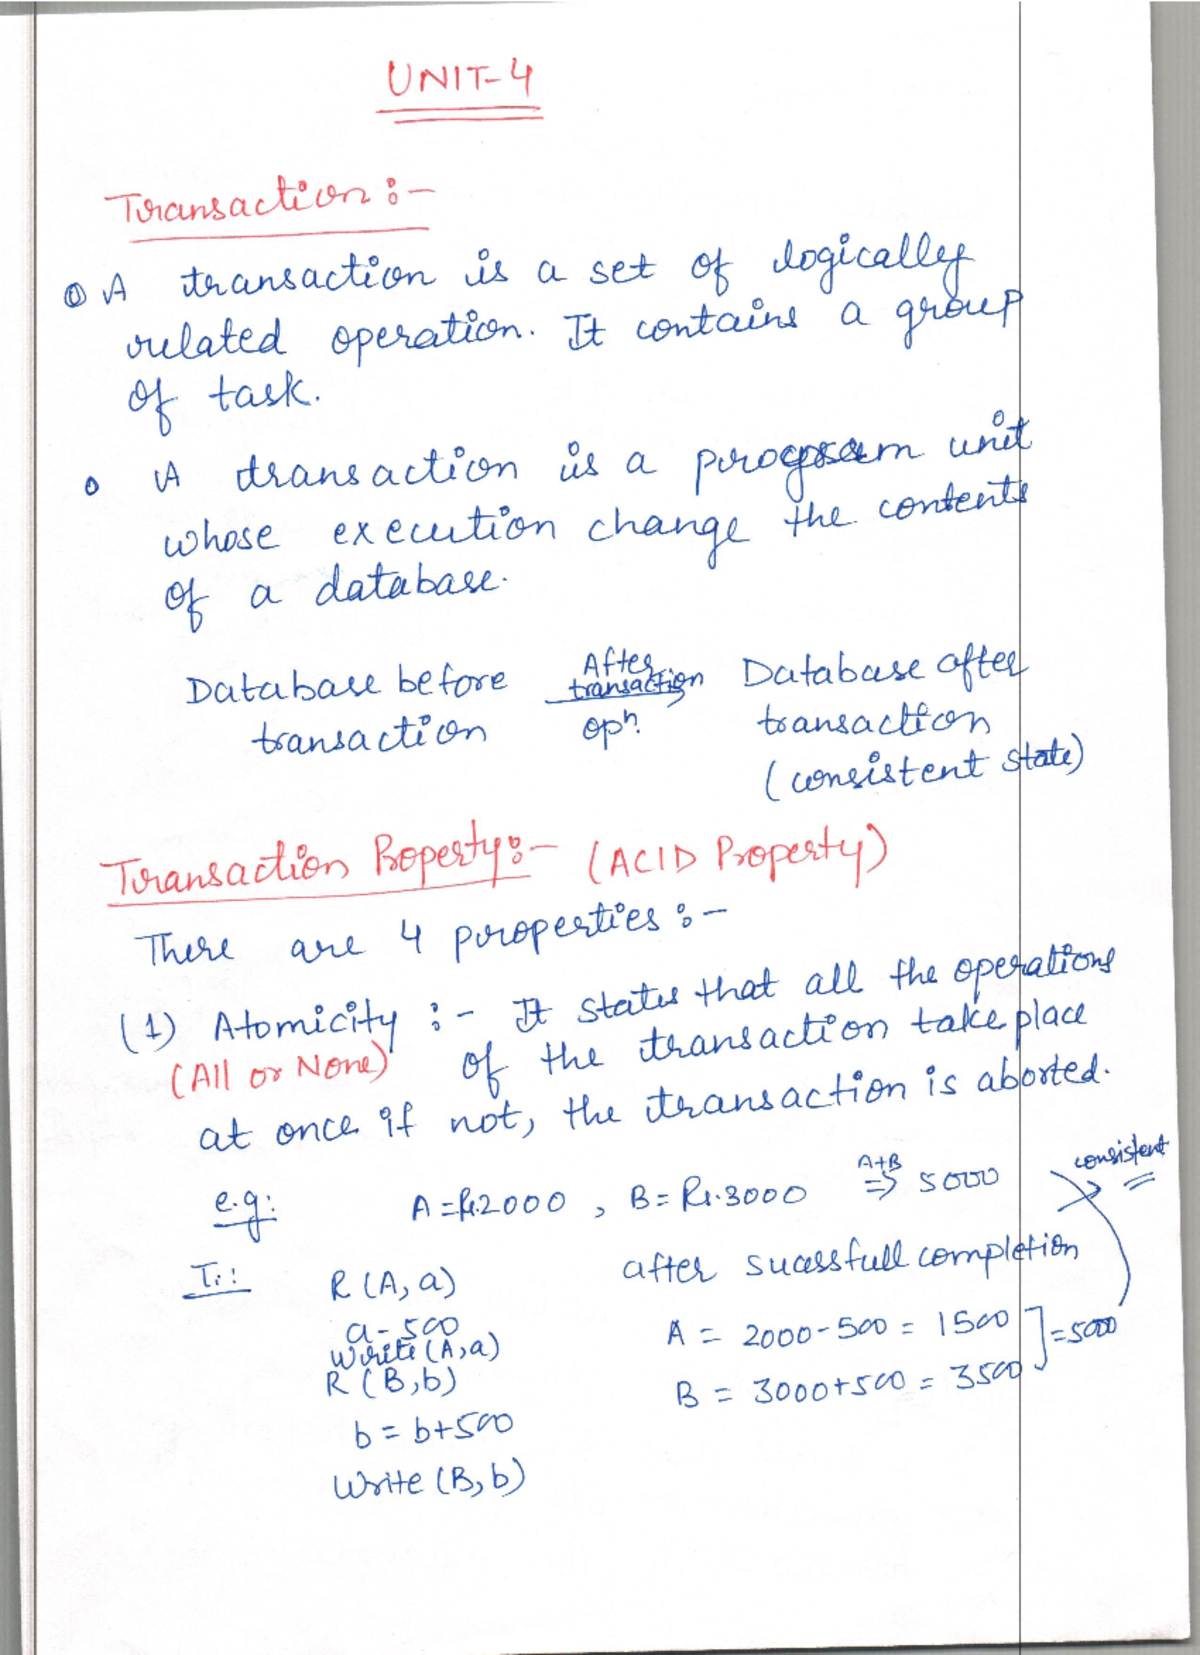 UNIT-4
Transaction :-
A transaction is a set of logically
related operation. It contains a group
of task.
A transaction is a program unit
whose execution change the contents
of a database.
Database before After transaction opn. Database after
transaction transaction
(consistent state)
Transaction Property :- (ACID Property)
There are 4 properties :-
(1) Atomicity :- It states that all the operations
(All or None) of the transaction take place
at once if not, the transaction is aborted.
e.g: A = Rs.2000 , B = Rs.3000 A+B => 5000 consistent
Ti: R (A, a) after sucessfull completion
a - 500
Write (A,a) A = 2000-500 = 1500 ] = 5000
R (B,b) B = 3000+500 = 3500
b = b+500
Write (B, b)